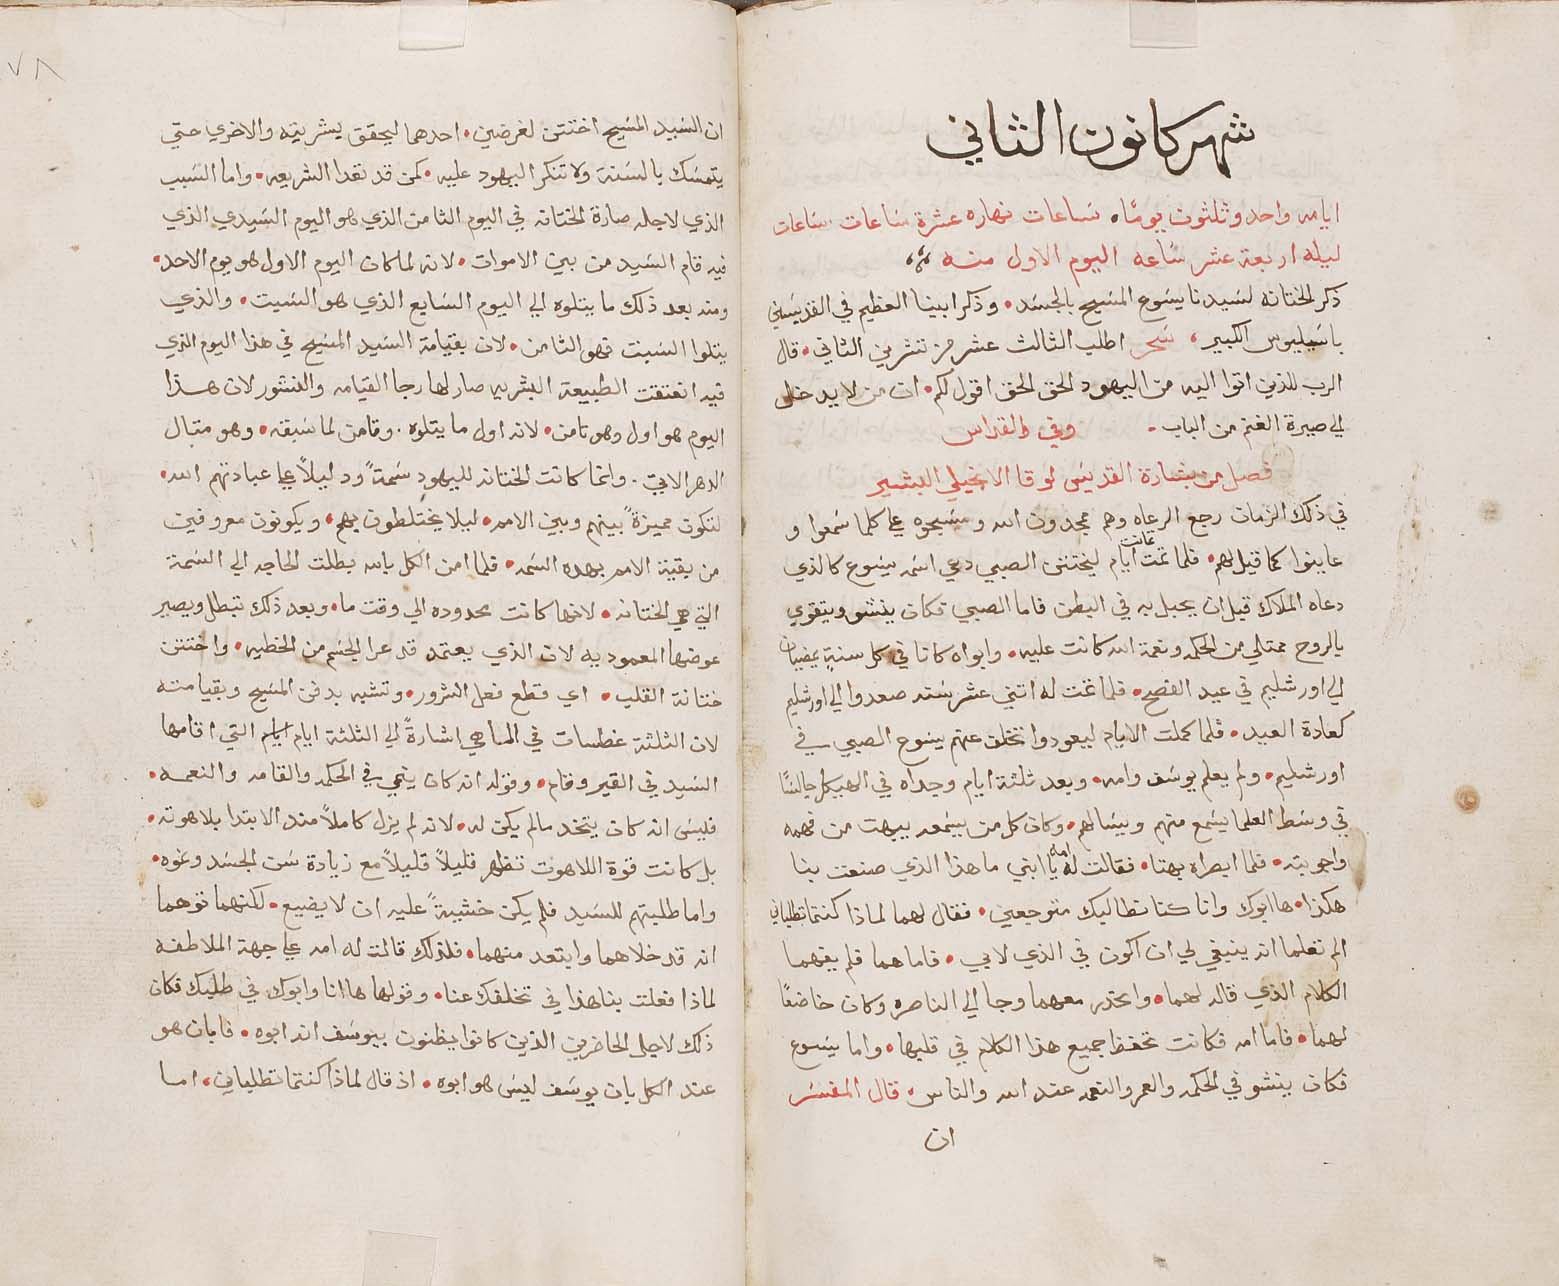 شهر كانون الثاني
ايامه واحد وثلثون يومًا • ساعات نهاره عشرة ساعات ساعات
ليله اربعة عشر ساعه اليوم الاول منه
ذكر لختانة لسيدنا يسوع المسيح بالجسد • وذكر ابينا العظيم في القديسين
باسيليوس الكبير، سَحر اطلب الثالث عشر من تشرين الثاني • قال
الرب للذين اتوا اليه من اليهود الحق الحق اقول لكم • ان من لا يدخل
الي صيرة الغنم من الباب - وفي القداس
فصل من بشارة القديس لوقا الانجيلي البشير
في ذلك الزمان رجع الرعاه وهم يمجدون الله ومسبحوه علي كلما سمعوا و
عاينوا كما قيل لهم • فلما تمت ثمانية ايام ليختتن الصبي دعي اسمه يسوع كالذي
دعاه الملاك قبل ان يحبل به في البطن فاما الصبي فكان ينشو ويتقوي
بالروح ممتلي من الحكمه ونعمة الله كانت عليه • وابواه كانا في كل سنةٍ يمضيان
الي اورشليم في عيد الفصح • فلما تمت له اثني عشر سنه صعدوا الي اورشليم
كعادة العيد • فلما كملت الايام ليعودوا تخلف عنهم يسوع الصبي في
اورشليم • ولم يعلم يوسف وامه • وبعد ثلثة ايام وجداه في الهيكل جالسًا
في وسط العلما يسمع منهم ويسالهم • وكان كل من يسمعه يبهت من فهمه
واجوبته • فلما ابصراه بهتا • فقالت له امه يا ابني ما هذا الذي صنعت بنا
هكذا • ها ابوك وانا كنا نطالبك متوجعين • فقال لهما لماذا كنتما تطلباني
الم تعلما انه ينبغي لي ان اكون في الذي لابي • فاما هما فلم يفهما
الكلام الذي قاله لهما • وانحدر معهما وجا الي الناصره وكان خاضعًا
لهما • فاما امه فكانت تحفظ جميع هذا الكلام في قلبها • واما يسوع
فكان ينشو في الحكمه والعمر والنعمه عند الله والناس • قال المفسر
ان
٧٨
ان السيد المسيح اختتن لغرضين • احدهما ليحقق بشريته والاخري حتي
يتمسك بالسنة ولا تنكر اليهود عليه • كمن قد تعدا الشريعه • واما السبب
الذي لاجله صارة لختانه في اليوم الثامن الذي هو اليوم السيدي الذي
فيه قام السيد من بين الاموات • لانه لما كان اليوم الاول هو يوم الاحد •
ومنه بعد ذلك ما يتلوه الي اليوم السابع الذي هو السبت • والذي
يتلوا السبت فهو الثامن • لان بقيامة السيد المسيح في هذا اليوم الذي
فيه انعتقت الطبيعة البشريه صار لها رجا القيامه والنشور لان هذا
اليوم هو اول وهو ثامن • لانه اول ما يتلوه • وثامن لما سبقه • وهو مثال
الدهر الاتي • وانما كانت الختانه لليهود سمةً ودليلاً علي عبادتهم الله •
لتكون مميزةً بينهم وبين الامم • ليلا يختلطون بهم • ويكونون معروفين
من بقية الامم بهده السمه • فلما امن الكل بالله بطلت الحاجه الي السمة
التي هي الختانه • لانها كانت محدوده الي وقت ما • وبعد ذلك تبطل ويصير
عوضها المعموديه لان الذي يعتمد قد عرا الجسم من الخطيه • واختتن
ختانة القلب • اي قطع فعل الشرور • وتشبه بدفن المسيح وبقيامته
لان الثلثة غطسات في الما هي اشارةً الي الثلثة ايام ايام التي اقامها
السيد في القبر وقام • وقوله انه كان ينمي في الحكمه والقامه والنعمه •
فليس انه كان يتخد مالم يكن له • لانه لم يزل كاملاً مند الابتدا بلاهوته •
بل كانت قوة اللاهوت تظهر قليلاً قليلاً مع زيادة سن الجسد ونموه •
واما طلبتهم للسيد فلم يكن خشيةً عليه ان لا يضيع • لكنهما توهما
انه قد خلاهما وابتعد منهما • فلذلك قالت له امه علي جهة الملاطفه
لماذا فعلت بنا هذا في تخلفك عنا • وقولها ها انا وابوك في طلبك فكان
ذلك لاجل الحاضرين الذين كانوا يظنون بيوسف انه ابوه • فابان هو
عند الكل بان يوسف ليس هو ابوه • اذ قال لماذا كنتما تطلباني • اما